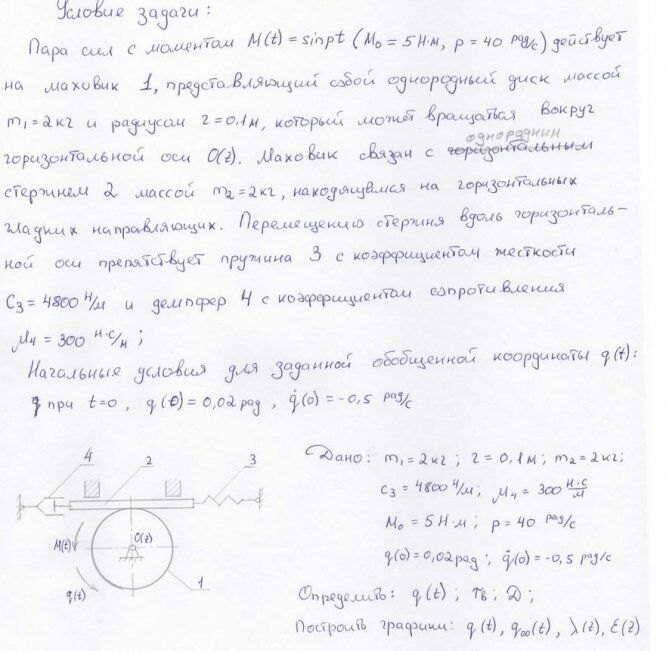 Условие задачи:
Пара сил с моментом M(t) = sinpt (M₀ = 5 Н·м, p = 40 рад/с) действует
на маховик 1, представляющий собой однородный диск массой
m₁ = 2 кг и радиусом r = 0.1 м, который может вращаться вокруг
однородным
горизонтальной оси O(z). Маховик связан с горизонтальным
стержнем 2 массой m₂ = 2 кг, находящемся на горизонтальных
гладких направляющих. Перемещению стержня вдоль горизонталь-
ной оси препятствует пружина 3 с коэффициентом жесткости
C₃ = 4800 Н/м и демпфер 4 с коэффициентом сопротивления
μ₄ = 300 Н·с/м ;
Начальные условия для заданной обобщенной координаты q(t):
при t=0 , q(0) = 0,02 рад , q̇(0) = -0,5 рад/с
4
2
3
M(t)
O(z)
q(t)
1
Дано: m₁ = 2 кг ; r = 0,1 м ; m₂ = 2 кг ;
C₃ = 4800 Н/м ; μ₄ = 300 Н·с/м
M₀ = 5 Н·м ; p = 40 рад/с
q(0) = 0,02 рад ; q̇(0) = -0,5 рад/с
Определить: q(t) ; τв ; D ;
Построить графики: q(t), q∞(t), λ(t), ε(z)